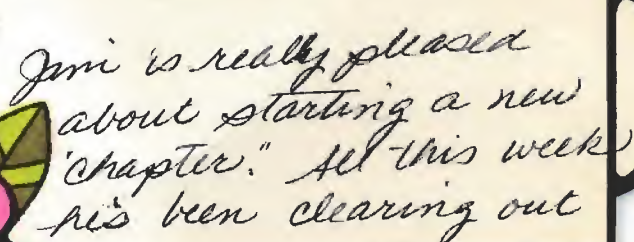 Jimi is really pleased
about starting a new
"chapter." All this week
he's been clearing out